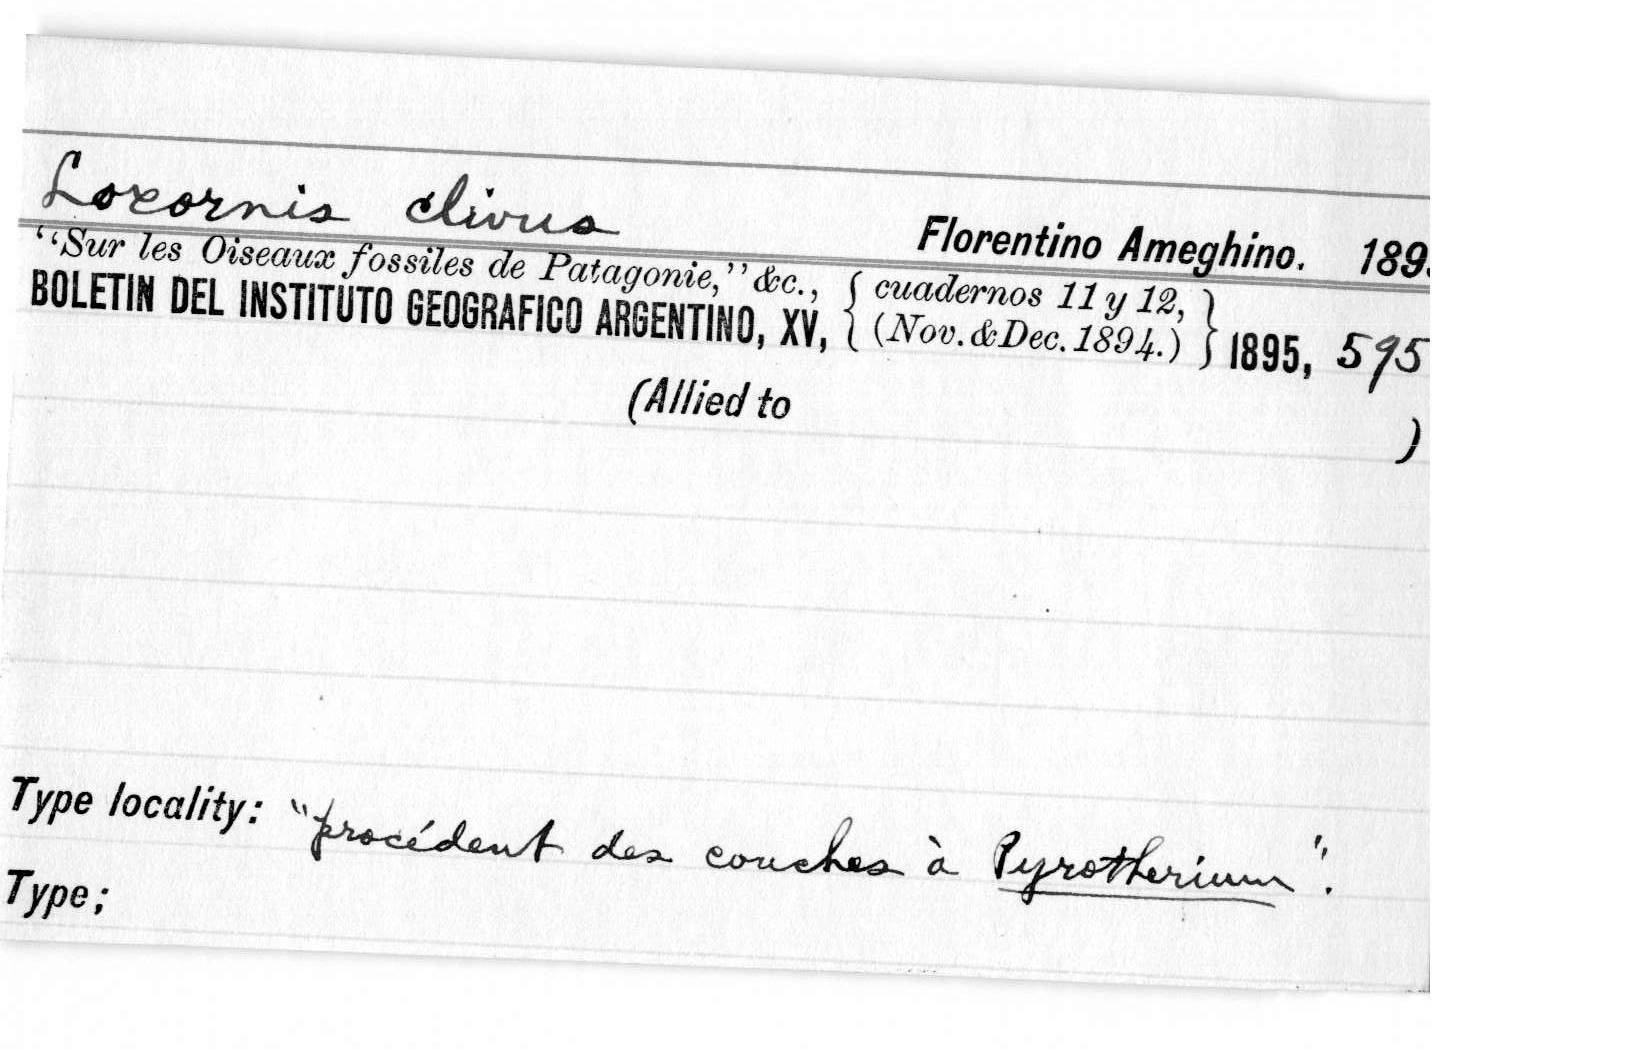 Loxornis clivus
Florentino Ameghino. 189
"Sur les Oiseaux fossiles de Patagonie," &c., { cuadernos 11 y 12, }
BOLETIN DEL INSTITUTO GEOGRAFICO ARGENTINO, XV, { (Nov. & Dec. 1894.) } 1895, 595
(Allied to )
Type locality: "procédent des couches à Pyrotherium".
Type;